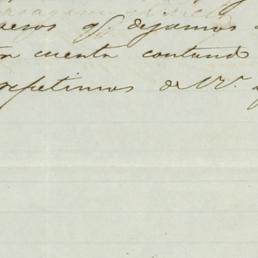 pesos q̃ dejamos
en cuenta contando
repetimos de VV.